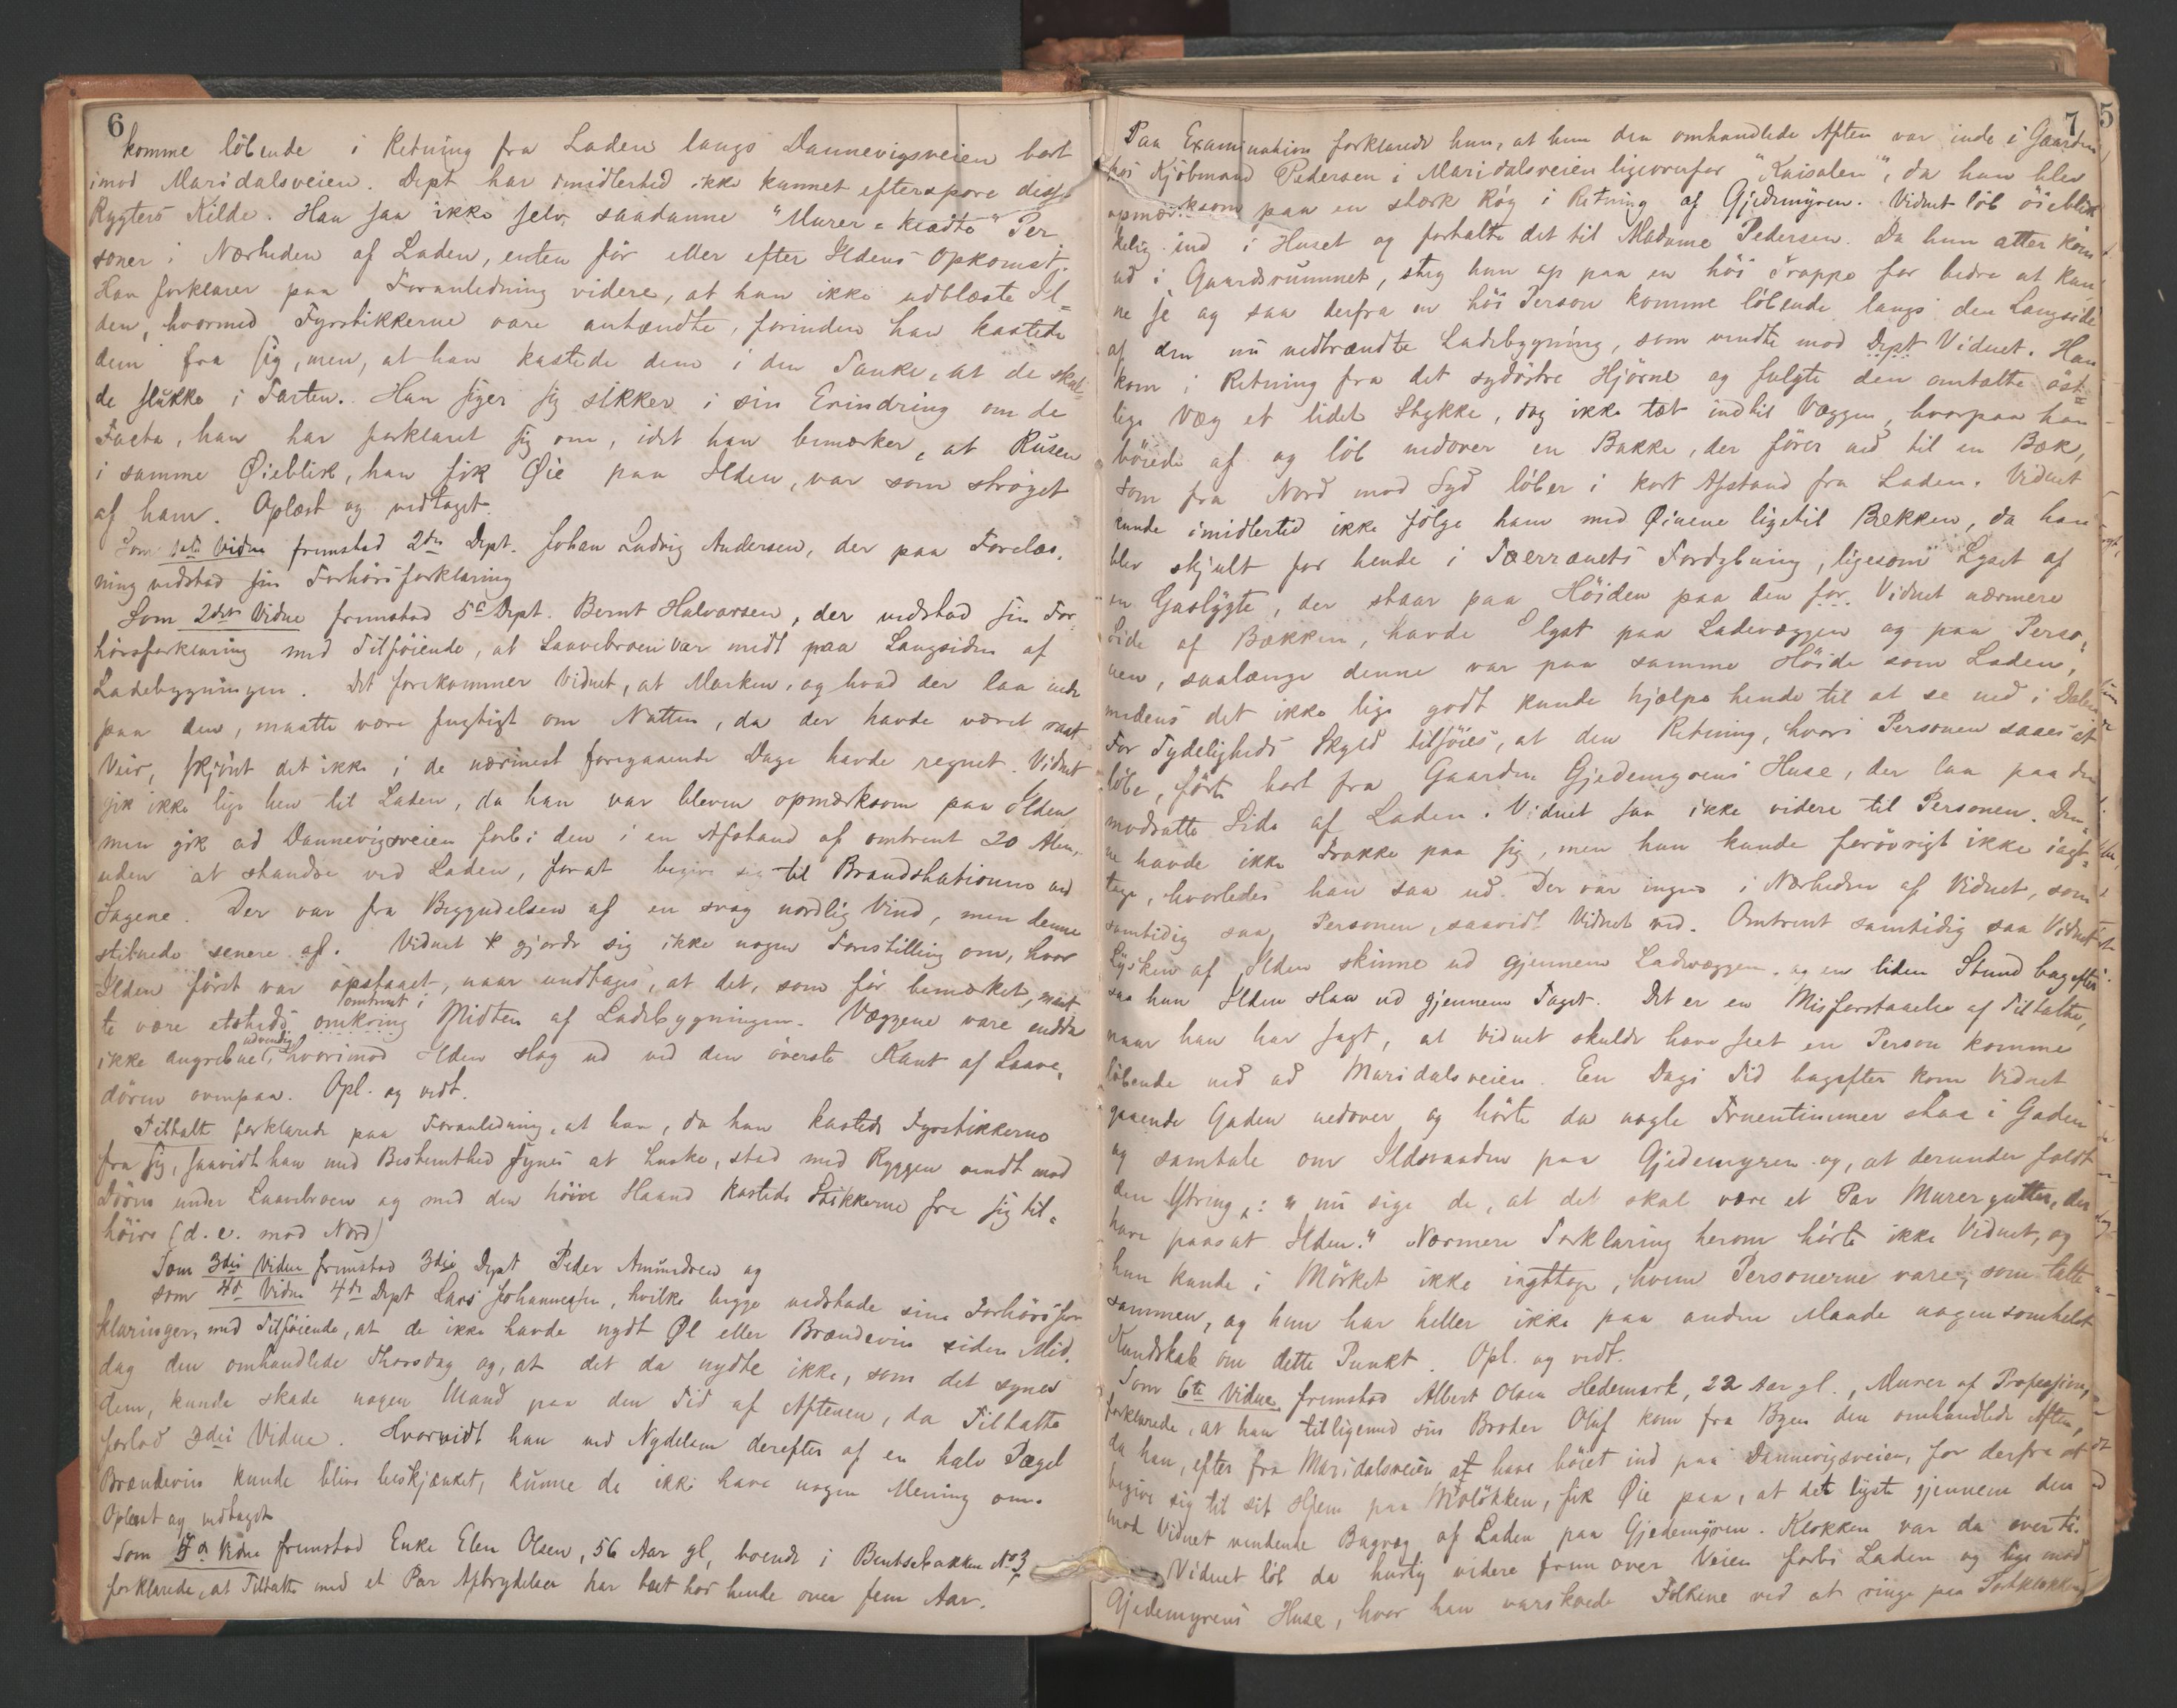 6
komme löbende i Retning fra Laden langs Dannevigsveien bort
imod Maridalsveien. Dept har imidlertid ikke kunnet efterspore disse
Rygters Kilde. Han saa ikke selv saadanne "Murer=klædte" Per
soner i Nærheden af Laden, enten för eller efter Ildens Opkomst.
Han forklarer paa Foranledning videre, at han ikke udblæste Il=
den, hvormed Fyrstikkerne vare antændte, forinden han kastede
dem fra sig, men, at han kastede dem i den Tanke, at de skul=
de slukke i Farten. Han siger sig sikker i sin Erindring om de
Facta, han har forklaret sig om, idet han bemærker, at Rusen
i samme Øieblik, han fik Øie paa Ilden, var som ströget
af ham. Oplæst og vedtaget.
Som 1ste Vidne fremstod 2den Dept. Johan Ludvig Andersen, der paa Forelæs.
ning vedstod sin Forhörsforklaring
Som 2det Vidne fremstod 5te Dept. Bernt Halvorsen, der vedstod sin For
hörsforklaring med Tilföiende, at Laavebroen var midt paa Langsiden af
Ladebygningen. Det forekommer Vidnet, at Marken, og hvad der laa inde
paa den, maatte være fugtigt om Natten, da der havde været raat
Veir, skjönt det ikke i de nærmest foregaaende Dage havde regnet. Vidnet
gik ikke lige hen til Laden, da han var bleven opmærksom paa Ilden
men gik ad Dannevigsveien forbi den i en Afstand af omtrent 20 Alen,
uden at standse ved Laden, forat begive sig til Brandstationen ved
Sagene. Der var fra Begyndelsen af en svag nordlig Vind, men denne
stilnede senere af. Vidnet gjorde sig ikke nogen Forestilling om, hvor
Ilden först var opstaaet, naar undtages, at det, som för bemærket, maat
te være etsteds omkring omtrent i Midten af Ladebygningen. Væggene vare endda
ikke angrebne udvendig, hvorimod Ilden slog ud ved den överste Kant af Laave=
dören ovenpaa. Opl. og vedt.
Tiltalte forklarede paa Foranledning, at han, da han kastede Fyrstikkerne
fra sig, saavidt han med Bestemthed synes at huske, stod med Ryggen vendt mod
Dören under Laavebroen og med den höire Haand kastede Stikkerne fra sig til=
höire (d. e. mod Nord)
Som 3die Vidne fremstod 3die Dept Peder Amundsen og
som 4de Vidne 4de Dept Lars Johannesen, hvilke begge vedstode sine Forhörsfor
klaringer, med Tilföiende, at de ikke havde nydt Øl eller Brændevin siden Mid.
dag den omhandlede Thorsdag og, at det da nydte ikke, som det synes
dem, kunde skade nogen Mand paa den Tid af Aftenen, da Tiltalte
forlod 3die Vidne. Hvorvidt han ved Nydelsen derefter af en halv Pægel
Brændevin kunde blive beskjænket, kunne de ikke have nogen Mening om.
Oplæst og vedtaget
Som 5te Vidne fremstod Enke Elen Olsen, 56 Aar gl, boende i Bentsebakken No 3,
forklarede, at Tiltalte med et Par Afbrydelser har boet hos hende over fem Aar.
7
5
Paa Examination forklarede hun, at hun den omhandlede Aften var inde i Gaarden
hos Kjöbmand Pedersen i Maridalsveien ligeoverfor "Kaisalen", da hun blev
opmærksom paa en stærk Røg i Retning af Gjedemyren. Vidnet löb öieblik
kelig ind i Huset og fortalte det til Madame Pedersen. Da hun atter kom
ud i Gaardsrummet, steg hun op paa en höi Trappe for bedre at kun
ne se og saa derfra en höi Person komme löbende langs den Langside
af den nu nedbrændte Ladebygning, som vendte mod Dept Vidnet. Han
kom i Retning fra det sydöstre Hjörne og fulgte den omtalte öst=
lige Væg et lidet Stykke, dog ikke tæt indtil Væggen, hvorpaa han
böiede af og löb nedover en Bakke, der förer ned til en Bæk,
som fra Nord mod Syd löber i kort Afstand fra Laden. Vidnet
kunde imidlertid ikke fölge ham med Øinene ligetil Bækken, da han
blev skjult for hende i Tærrænets Fordybning, ligesom Lyset af
en Gaslygte, der staar paa Höiden paa den for Vidnet nærmere
Side af Bækken, havde lyst paa Ladevæggen og paa Perso=
nen, saalænge denne var paa samme Höide som Laden,
medens det ikke lige godt kunde hjælpe hende til at se ned i Dalen
For Tydeligheds Skyld tilföies, at den Retning, hvori Personen saaes at
löbe, förte bort fra Gaarden Gjedemyrens Huse, der laa paa den
modsatte Side af Laden. Vidnet saa ikke videre til Personen. Den=
ne havde ikke Frakke paa sig, men hun kunde forövrigt ikke iagt=
tage, hvorledes han saa ud. Der var ingen i Nærheden af Vidnet, som
samtidig saa Personen, saavidt Vidnet ved. Omtrent samtidig saa Vidnet
Lysken af Ilden skinne ud gjennem Ladevæggen, og en liden Stund bagefter
saa hun Ilden slaa ud gjennem Taget. Det er en Misforstaaelse af Tiltalte,
naar han har sagt, at Vidnet skulde have seet en Person komme
löbende ned ad Maridalsveien. En Dags Tid bagefter kom Vidnet
gaaende Gaden nedover og hörte da nogle Fruentimmer staa i Gaden
og samtale om Ildsvaaden paa Gjedemyren og, at derunder faldt
den Ytring: "nu sige de, at det skal være et Par Murergutter, der
have paasat Ilden." Nærmere Forklaring herom hörte ikke Vidnet, og
hun kunde i Mörket ikke iagttage, hvem Personerne vare, som talte
sammen, og hun har heller ikke paa anden Maade nogensomhelst
Kundskab om dette Punkt. Opl. og vedt.
Som 6te Vidne fremstod Albert Olsen Hedemark, 22 Aar gl., Murer af Profession,
forklarede, at han tilligemed sin Broder Oluf kom fra Byen den omhandlede Aften,
da han, efter fra Maridalsveien at have böiet ind paa Dannevigsveien, for derfra at
begive sig til sit Hjem paa Moløkken, fik Øie paa, at det lyste gjennem den
mod Vidnet vendende Bagvæg af Laden paa Gjedemyren. Klokken var da over ti.
Vidnet löb da hurtig videre frem over Veien forbi Laden og lige mod
Gjedemyrens Huse, hvor han varskoede Folkene ved at ringe paa